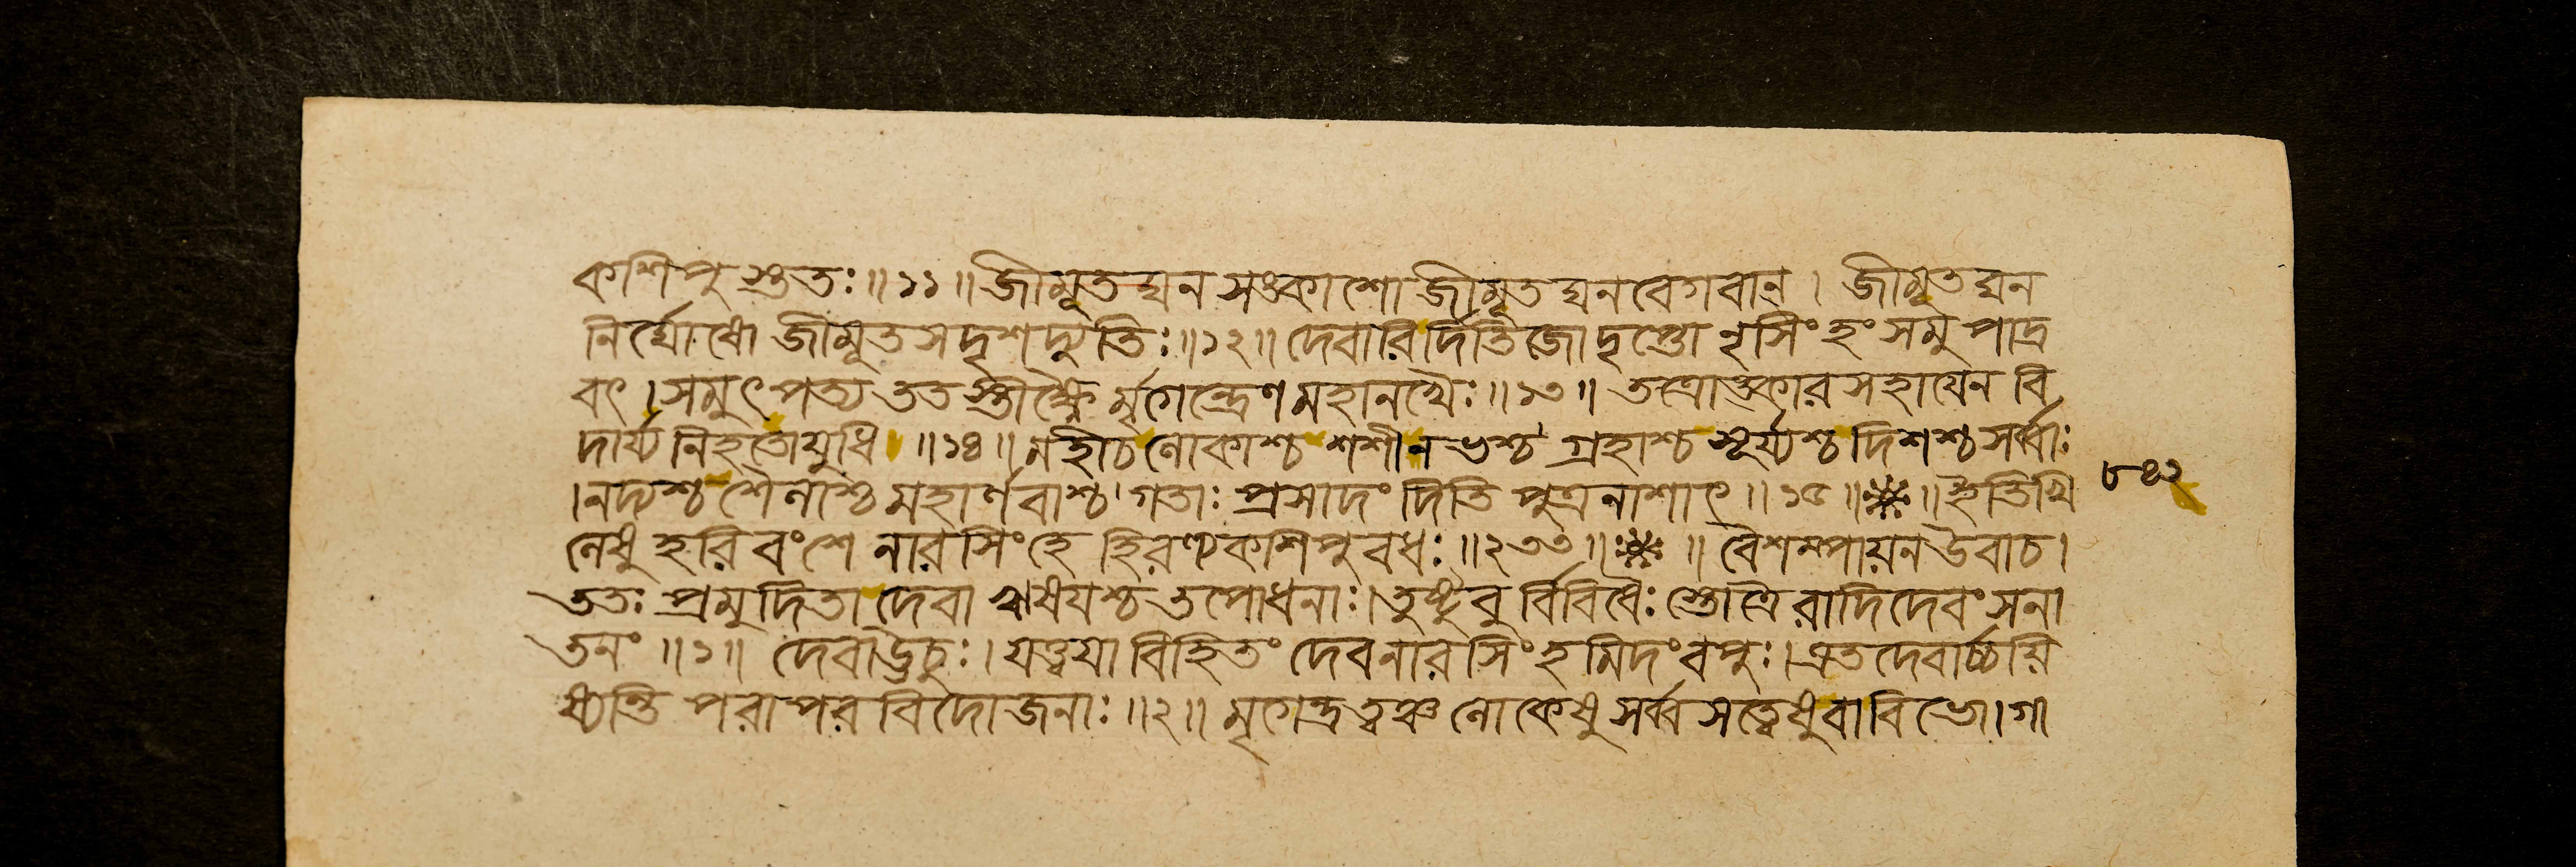 কশিপুস্তুতঃ॥১১॥জীমূতঘনসঙ্কাশো জীমূতঘনবেগবান্। জীমূতঘন
নির্ঘোষো জীমূতসদৃশদ্যুতিঃ॥১২॥দেবারির্দিতিজোদৃপ্তো নৃসিংহং সমুপাদ্র
বৎ।সমুৎপত্য ততস্তীক্ষ্ণৈর্মৃগেন্দ্রেণ মহানখৈঃ॥১৩॥ তত্রোঙ্কারসহায়েন বি
দার্য্য নিহতোযুধি ॥১৪॥মহীচ লোকাশ্চ শশীনভশ্চ গ্রহাশ্চ সূর্য্যশ্চ দিশশ্চ সর্ব্বাঃ
।নদ্যশ্চ শৈলাশ্চ মহার্ণবাশ্চ গতাঃ প্রসাদং দিতিপুত্রনাশাৎ॥১৫॥※॥ইতিখি
লেষু হরিবংশে নারসিংহে হিরণ্যকশিপুবধঃ॥২৩৩॥※॥ বৈশম্পায়ন উবাচ।
ততঃ প্রমুদিতা দেবা ঋষয়শ্চ তপোধনাঃ।তুষ্টুবুর্বিবিধৈঃ স্তোত্রৈরাদিদেবং সনা
তনং॥১॥ দেবাউচুঃ।যত্ত্বয়া বিহিতং দেব নারসিংহমিদং বপুঃ।এতদেবার্চ্চয়ি
ষ্যন্তি পরাপরবিদোজনাঃ॥২॥ মৃগেন্দ্রত্বঞ্চ লোকেষু সর্ব্বসত্ত্বেষু বা বিভো।গা
৮৪২